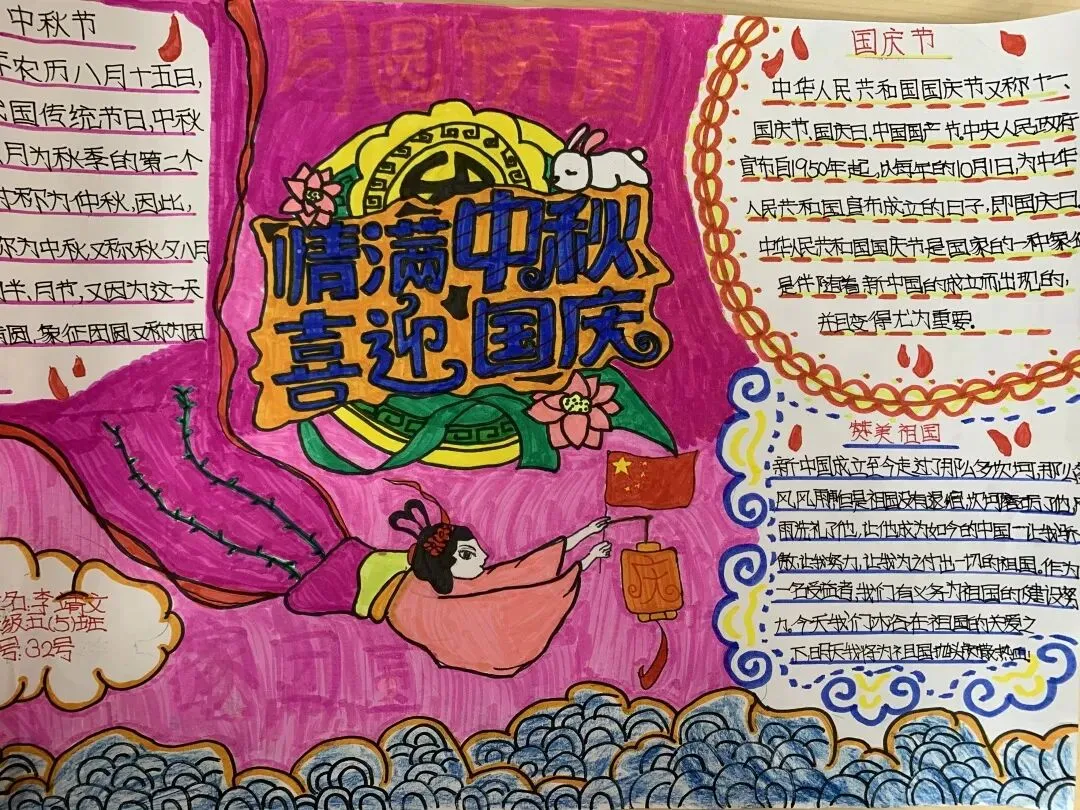 中秋节
农历八月十五日,
国传统节日,中秋
八月为秋季的第二个
称为仲秋,因此,
为中秋,又称秋夕八月
半.月节,又因为这一天
圆,象征团圆又称为团
月圆情圆
情满中秋
喜迎国庆
庆
名:李靖文
级五(5)班
号:32号
国庆节
中华人民共和国国庆节又称十一、
国庆节.国庆日.中国国产节.中央人民政府
宣布自1950年起,以每年的10月1日,为中华
人民共和国宣布成立的日子.即国庆日
中华人民共和国国庆节是国家的一种象征
是伴随着新中国的成立而出现的,
并且变得尤为重要。
赞美祖国
新中国成立至今走过了那么多坎坷那么多
风风雨雨但是祖国没有退缩.坎坷磨历了他,风
雨洗礼了他,让他成为如今的中国一让我骄
傲让我努力,让我为之付出一切的祖国。作为
一名受益者,我们有义务为祖国的建设努
力。今天我们沐浴在祖国的关爱之
下,明天我将为祖国抛头颅散热血!